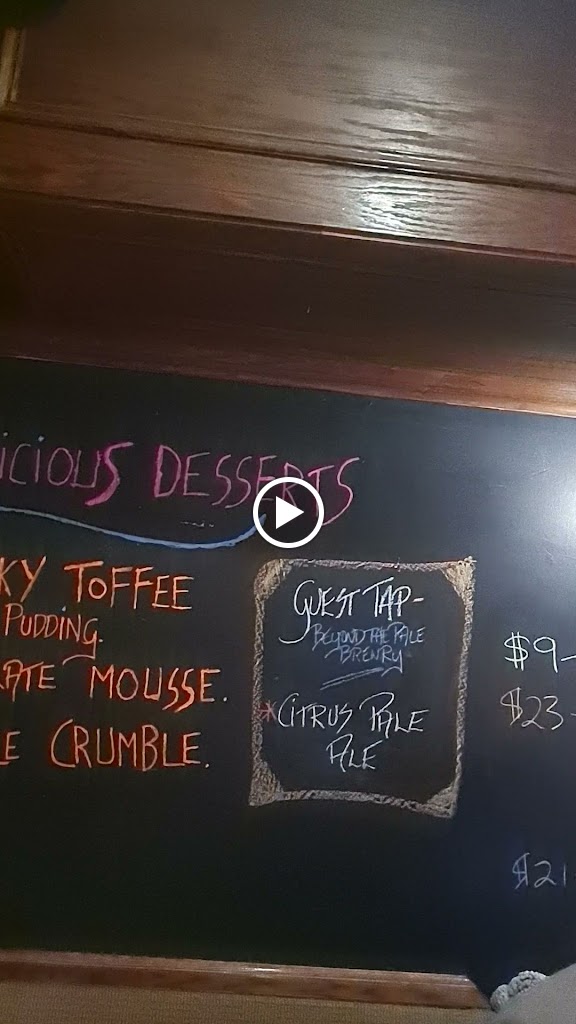 ICIOUS DESSERTS
KY TOFFEE
PUDDING.
ATE MOUSSE.
E CRUMBLE.
GUEST TAP-
BEYOND THE PALE
BREWRY
*CITRUS PALE
ALE
$9-
$23-
$21